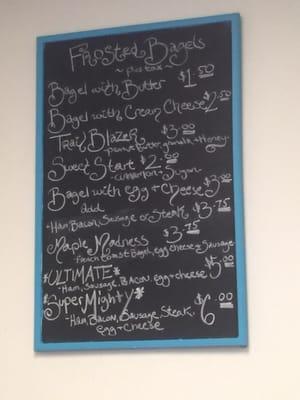 Frosted Bagels
~ plus tax ~
Bagel with Butter $1.50
Bagel with Cream Cheese $2.50
Trail Blazer $3.00
- peanut butter, granola, + Honey -
Sweet Start $2.00
- cinnamon + Sugar -
Bagel with egg + Cheese $3.00
add
+ Ham, Bacon, Sausage or Steak $3.75
Maple Madness $3.75
- French toast Bagel, egg cheese + Sausage
*ULTIMATE* $5.00
- Ham, Sausage, Bacon, egg + cheese
*Super Mighty* $6.00
- Ham, Bacon, Sausage, Steak,
egg + Cheese